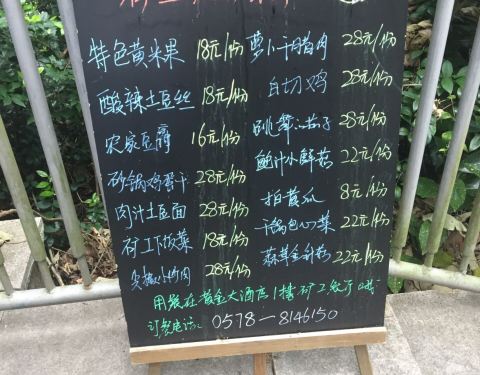 特色黄米果 18元/份 萝卜干腊肉 28元/份
酸辣土豆丝 18元/份 白切鸡 28元/份
农家豆腐 16元/份 28元/份
砂锅鸡蛋干 28元/份 鲍汁小鲜菇 22元/份
肉汁土豆面 28元/份 拍黄瓜 8元/份
矿工下饭菜 18元/份 干锅包心菜 22元/份
28元/份 蒜茸金针菇 22元/份
用餐在黄金大酒店1楼矿工餐厅
订餐电话: 0578-8146150